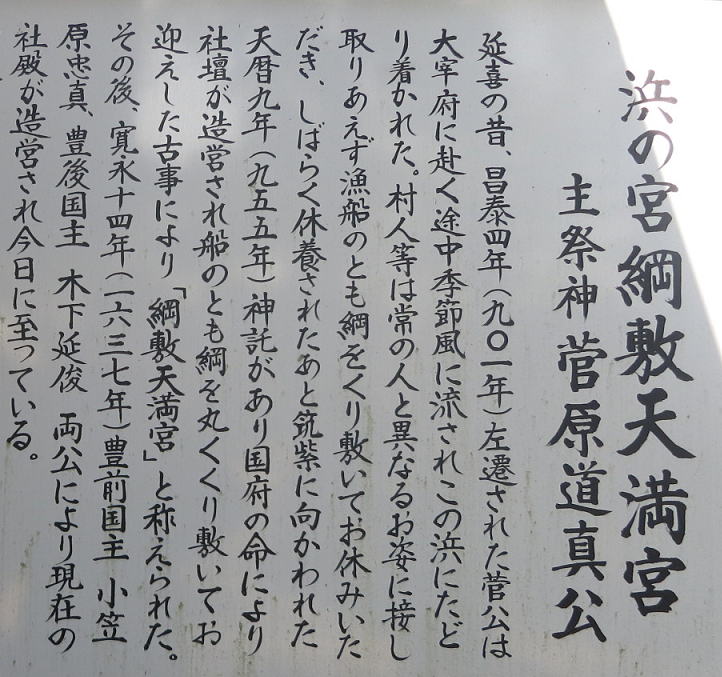 浜の宮綱敷天満宮
主祭神 菅原道真公
延喜の昔、昌泰四年(九〇一年)左遷された菅公は
大宰府に赴く途中季節風に流されこの浜にたど
り着かれた。村人等は常の人と異なるお姿に接し
取りあえず漁船のとも綱をくり敷いてお休みいた
だき、しばらく休養されたあと筑紫に向かわれた
天暦九年(九五五年)神託があり国府の命により
社壇が造営され船のとも綱を丸くくり敷いてお
迎えした古事により「綱敷天満宮」と称えられた。
その後、寛永十四年(一六三七年)豊前国主 小笠
原忠真、豊後国主 木下延俊 両公により現在の
社殿が造営され今日に至っている。